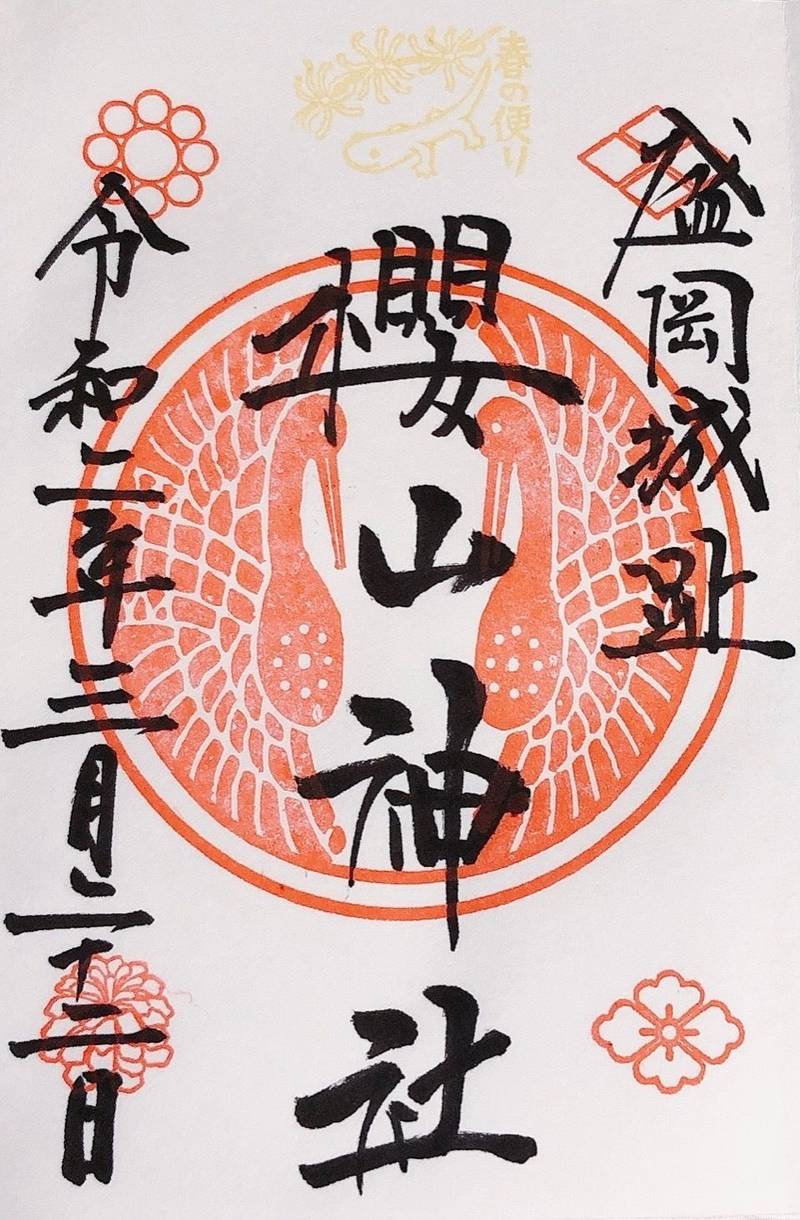 春の便り
盛岡城趾
櫻山神社
令和二年三月二十二日